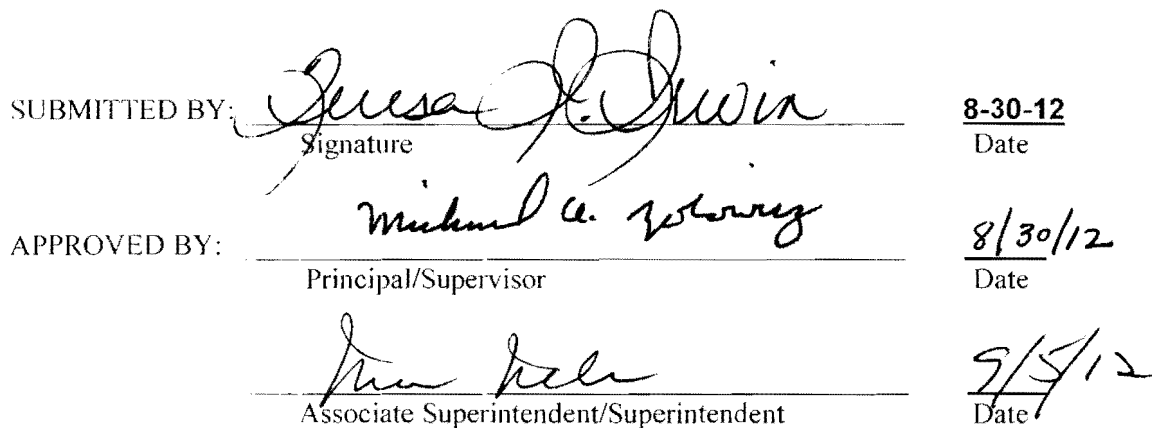 SUBMITTED BY: Teresa R. Irwin 8-30-12
Signature Date
Michael a.
APPROVED BY: 8/30/12
Principal/Supervisor Date
9/5/12
Associate Superintendent/Superintendent Date